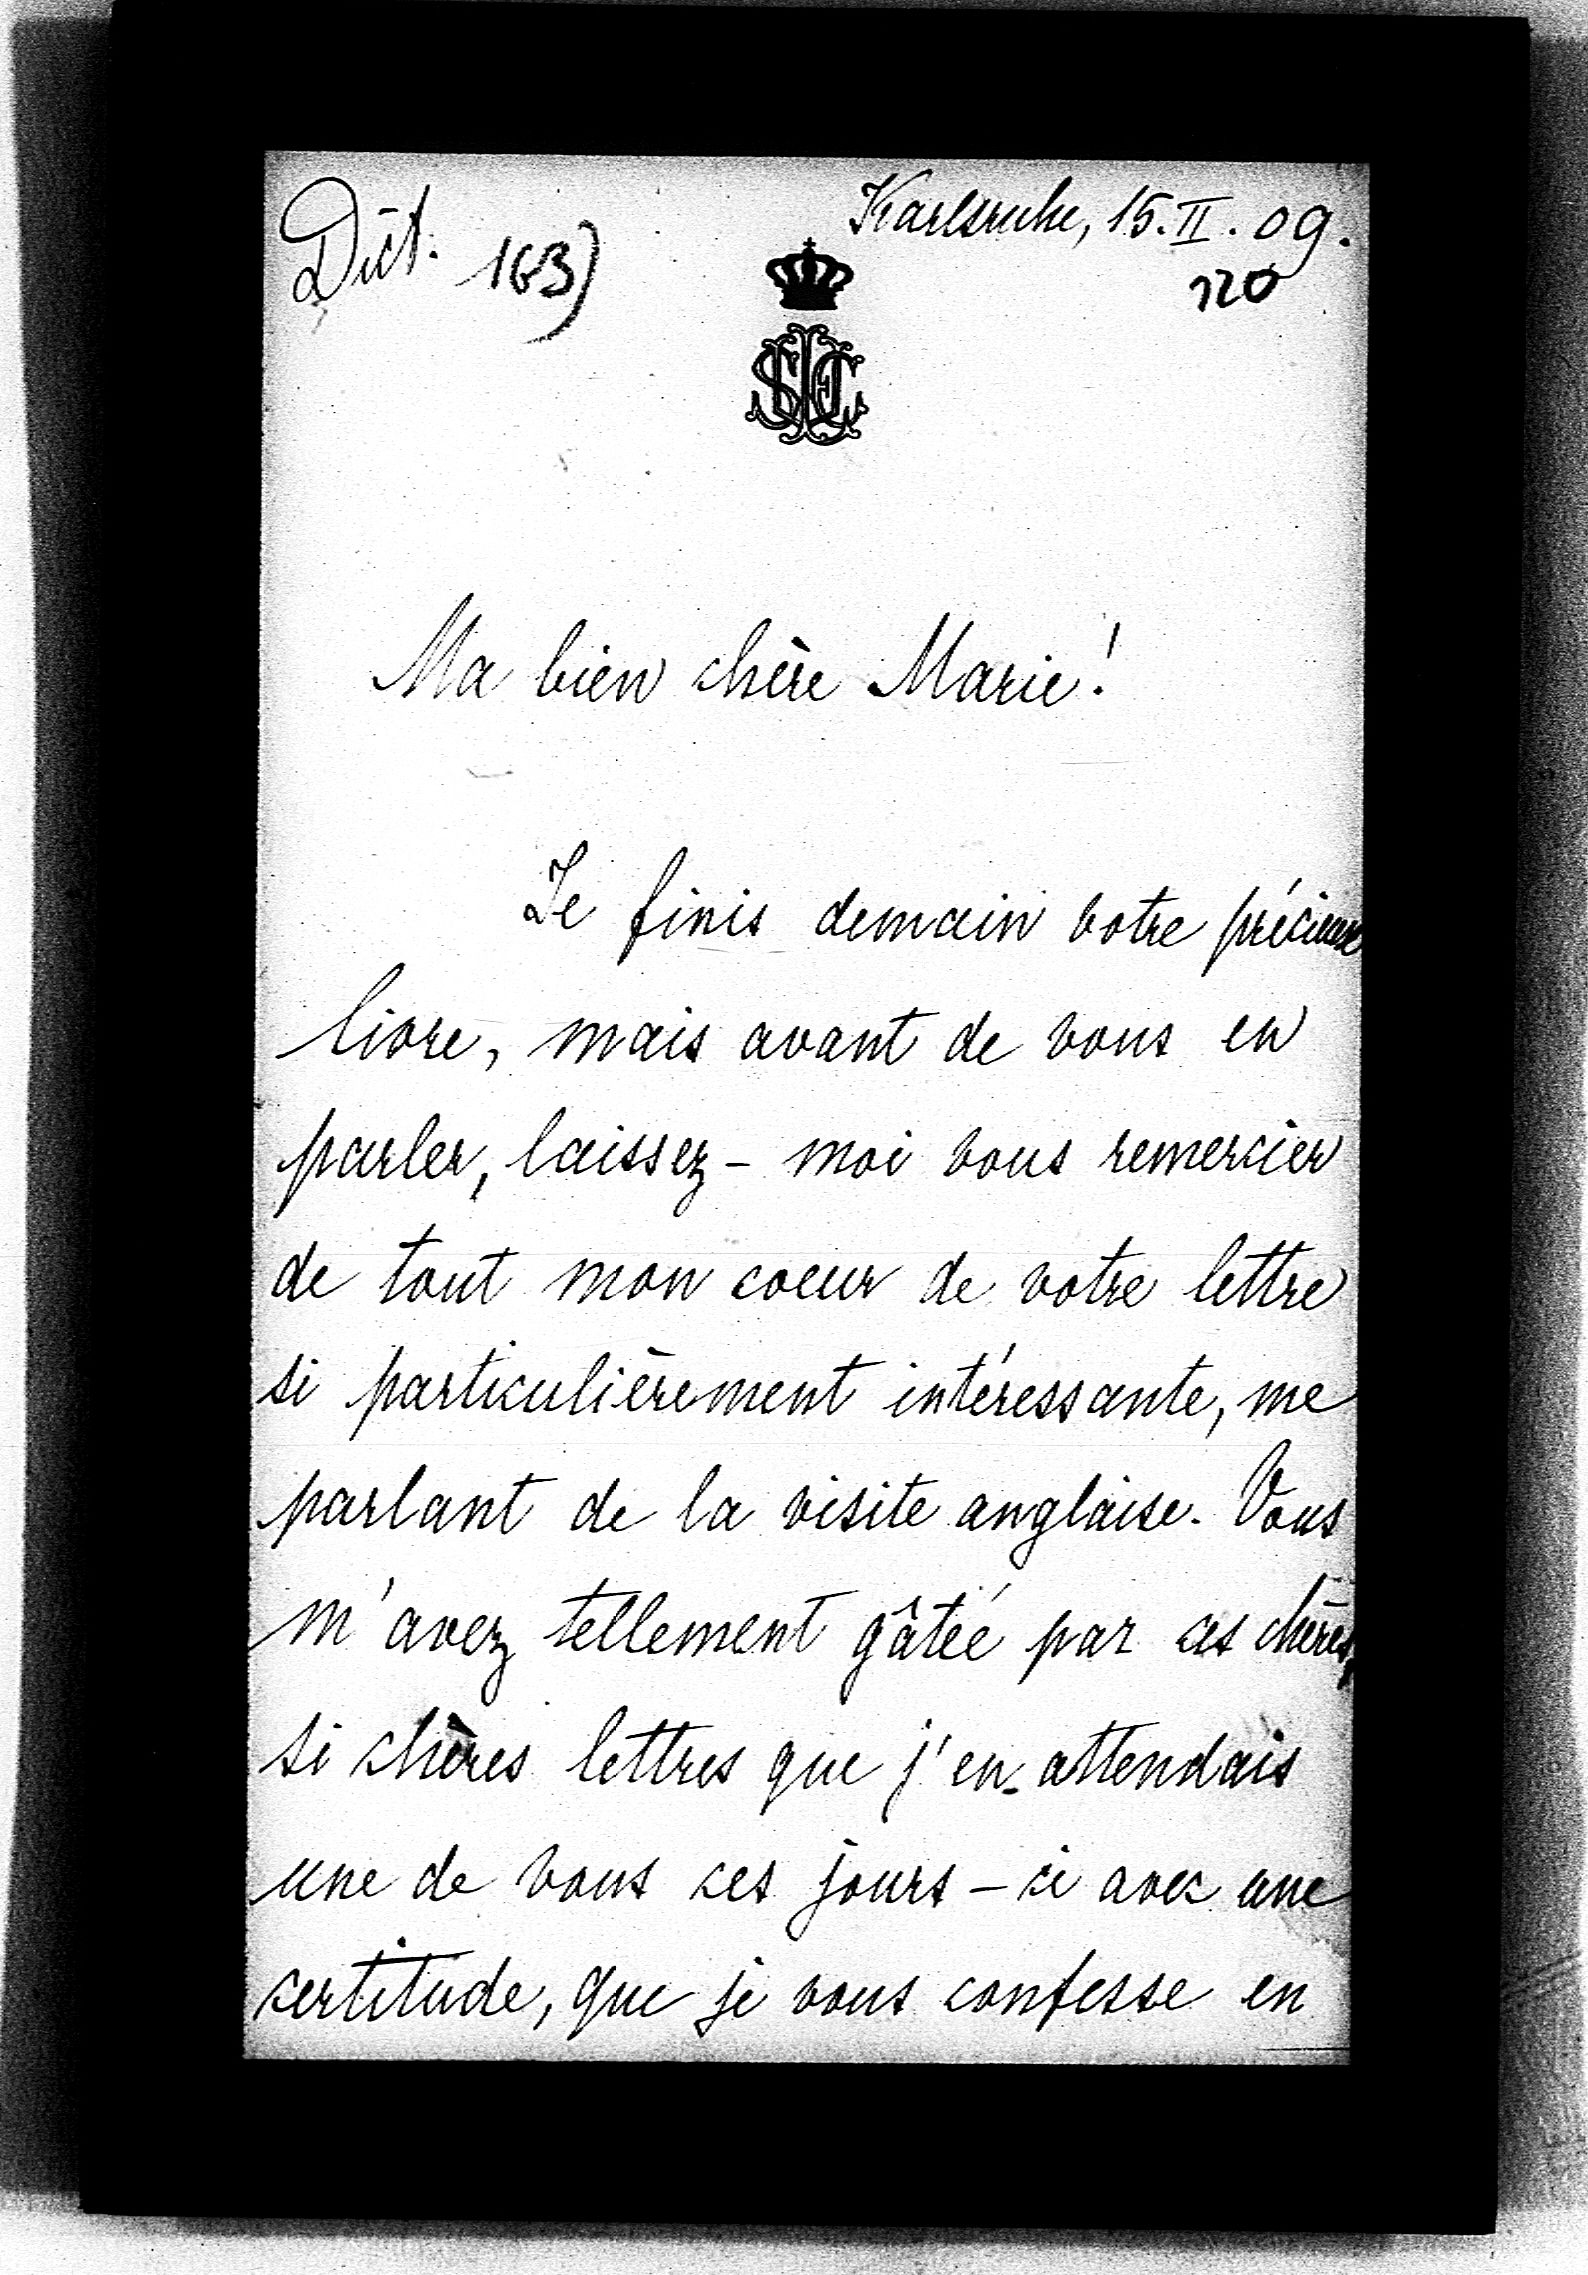 Dict. 163)
Karlsruhe, 15. II. 09.
120
Ma bien chère Marie!
Je finis demain votre précieux
livre, mais avant de vous en
parler, laissez-moi vous remercier
de tout mon coeur de votre lettre
si particulièrement intéressante, me
parlant de la visite anglaise. Vous
m'avez tellement gâtée par ces chères,
si chères lettres que j'en attendais
une de vous ces jours-ci avec une
certitude, que je vous confesse en